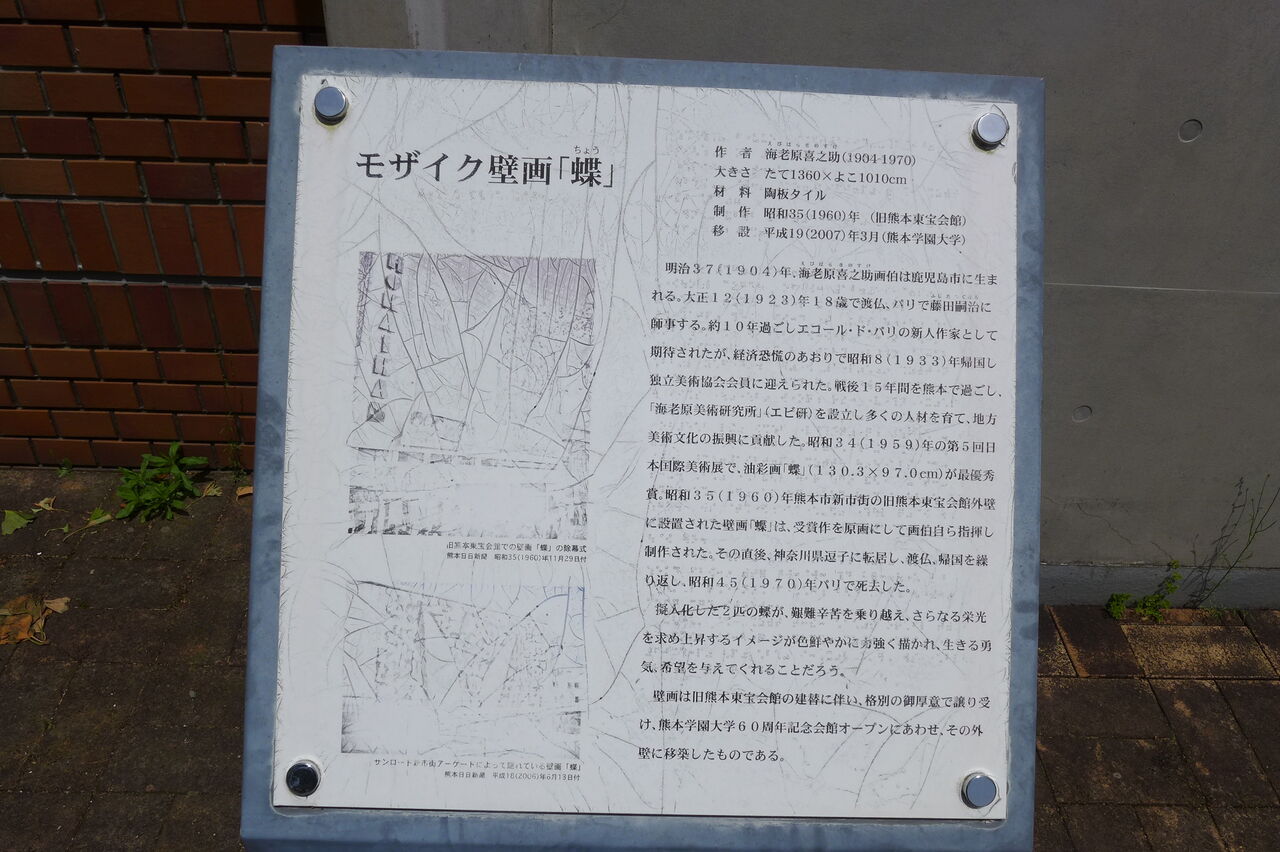 モザイク壁画「蝶」
ちょう
作者 海老原喜之助(1904-1970)
えびはらきのすけ
大きさ たて1360×よこ1010cm
材料 陶板タイル
制作 昭和35(1960)年 (旧熊本東宝会館)
移設 平成19(2007)年3月(熊本学園大学)
明治37(1904)年、海老原喜之助画伯は鹿児島市に生ま
えびはらきのすけ
れる。大正12(1923)年18歳で渡仏、パリで藤田嗣治に
師事する。約10年過ごしエコール・ド・パリの新人作家として
期待されたが、経済恐慌のあおりで昭和8(1933)年帰国し
独立美術協会会員に迎えられた。戦後15年間を熊本で過ごし、
「海老原美術研究所」(エビ研)を設立し多くの人材を育て、地方
美術文化の振興に貢献した。昭和34(1959)年の第5回日
本国際美術展で、油彩画「蝶」(130.3×97.0cm)が最優秀
賞。昭和35(1960)年熊本市新市街の旧熊本東宝会館外壁
に設置された壁画「蝶」は、受賞作を原画にして画伯自ら指揮し
制作された。その直後、神奈川県逗子に転居し、渡仏、帰国を繰
り返し、昭和45(1970)年パリで死去した。
擬人化した2匹の蝶が、艱難辛苦を乗り越え、さらなる栄光
を求め上昇するイメージが色鮮やかに力強く描かれ、生きる勇
気、希望を与えてくれることだろう。
壁画は旧熊本東宝会館の建替に伴い、格別の御厚意で譲り受
け、熊本学園大学60周年記念会館オープンにあわせ、その外
壁に移築したものである。
旧熊本東宝会館での壁画「蝶」の除幕式
熊本日日新聞 昭和35(1960)年11月29日付
サンロード新市街アーケードによって隠れている壁画「蝶」
熊本日日新聞 平成18(2006)年6月13日付